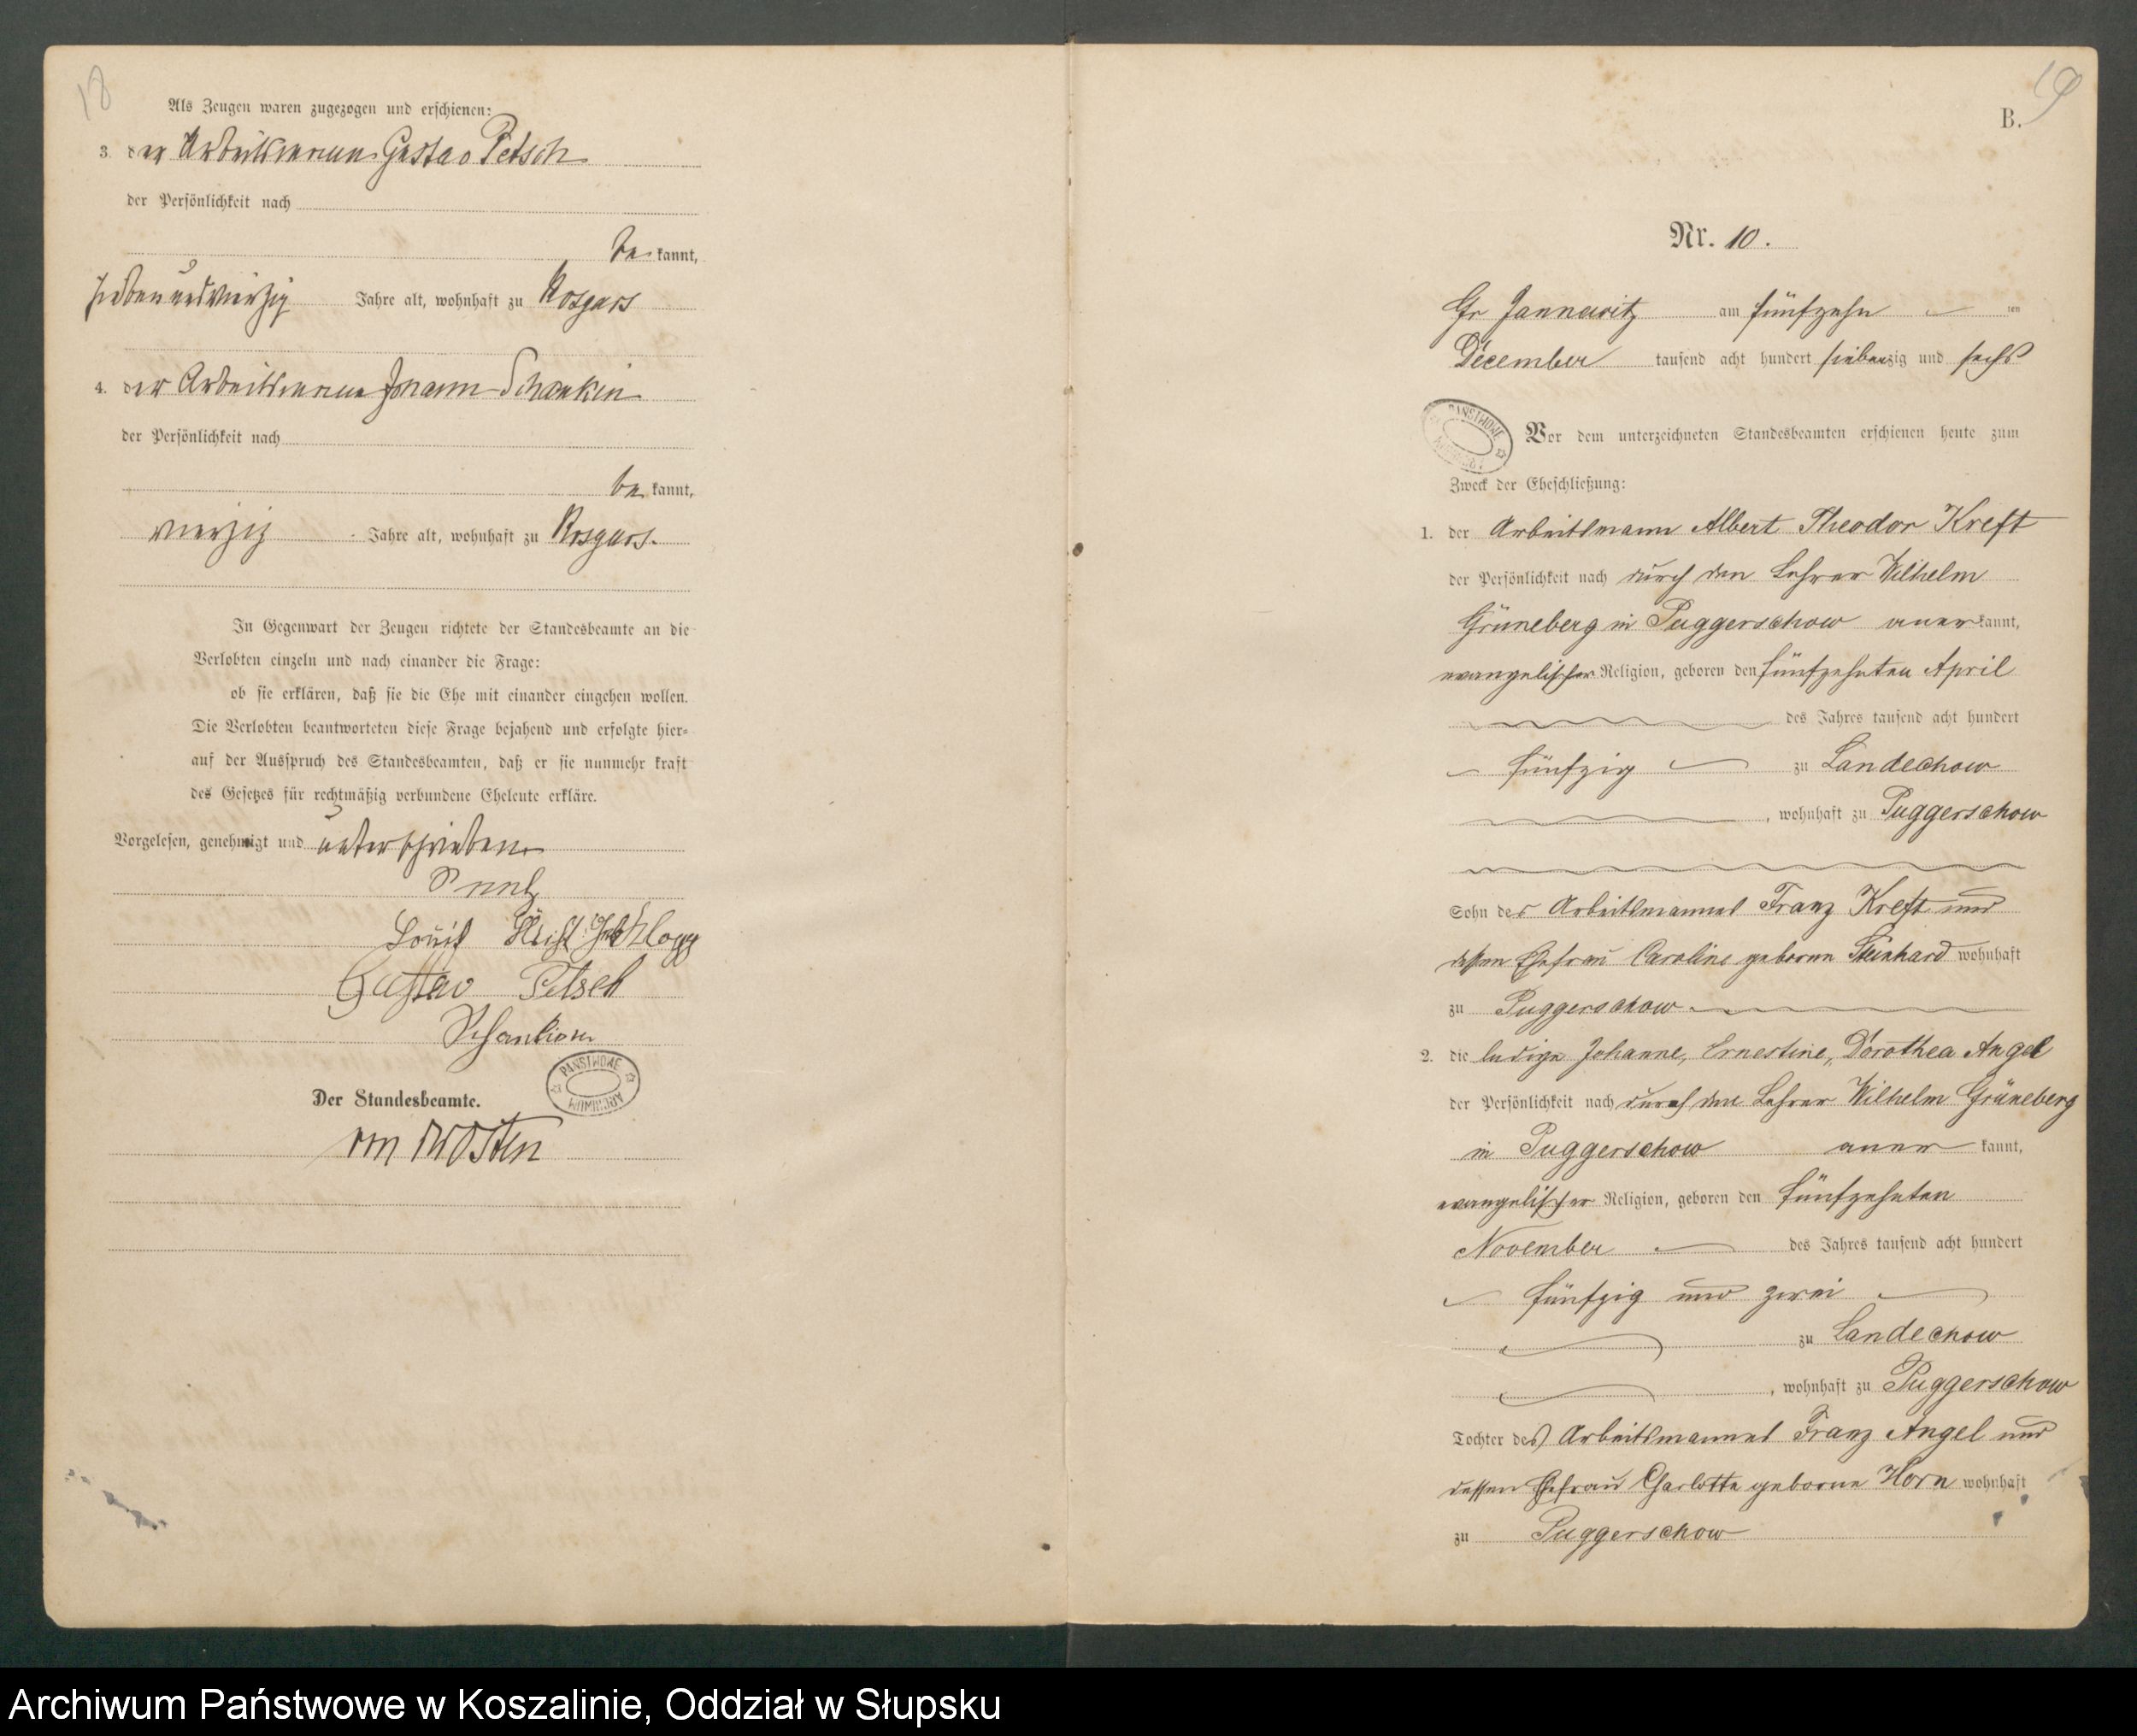 18
Als Zeugen waren zugezogen und erschienen:
3. der Arbeitsmann Gustav Petsch
der Persönlichkeit nach
be kannt,
siebenundvierzig Jahre alt, wohnhaft zu Rosgars
4. der Arbeitsmann Johann Schankin
der Persönlichkeit nach
be kannt,
vierzig Jahre alt, wohnhaft zu Rosgars.
In Gegenwart der Zeugen richtete der Standesbeamte an die
Verlobten einzeln und nach einander die Frage:
ob sie erklären, daß sie die Ehe mit einander eingehen wollen.
Die Verlobten beantworteten diese Frage bejahend und erfolgte hier-
auf der Ausspruch des Standesbeamten, daß er sie nunmehr kraft
des Gesetzes für rechtmäßig verbundene Eheleute erkläre.
Vorgelesen, genehmigt und unterschrieben
Gustav Petsch
Der Standesbeamte.
PAŃSTWOWE ARCHIWUM
19
B.
Nr. 10.
Gr Jannewitz am fünfzehn ten
December tausend acht hundert siebenzig und sechs
PAŃSTWOWE ARCHIWUM
Vor dem unterzeichneten Standesbeamten erschienen heute zum
Zweck der Eheschließung:
1. der Arbeitsmann Albert Theodor Kreft
der Persönlichkeit nach durch den Lehrer Wilhelm
Grüneberg in Puggerschow aner kannt,
evangelischer Religion, geboren den fünfzehnten April
des Jahres tausend acht hundert
fünfzig zu Landechow
, wohnhaft zu Puggerschow
Sohn des Arbeitsmannes Franz Kreft und
dessen Ehefrau Caroline geborne Steinhard wohnhaft
zu Puggerschow
2. die ledige Johanne, Ernestine, Dorothea Angel
der Persönlichkeit nach durch den Lehrer Wilhelm Grüneberg
in Puggerschow aner kannt,
evangelischer Religion, geboren den fünfzehnten
November des Jahres tausend acht hundert
fünfzig und zwei
zu Landechow
, wohnhaft zu Puggerschow
Tochter des Arbeitsmannes Franz Angel und
dessen Ehefrau Charlotte geborne Horn wohnhaft
zu Puggerschow
Archiwum Państwowe w Koszalinie, Oddział w Słupsku